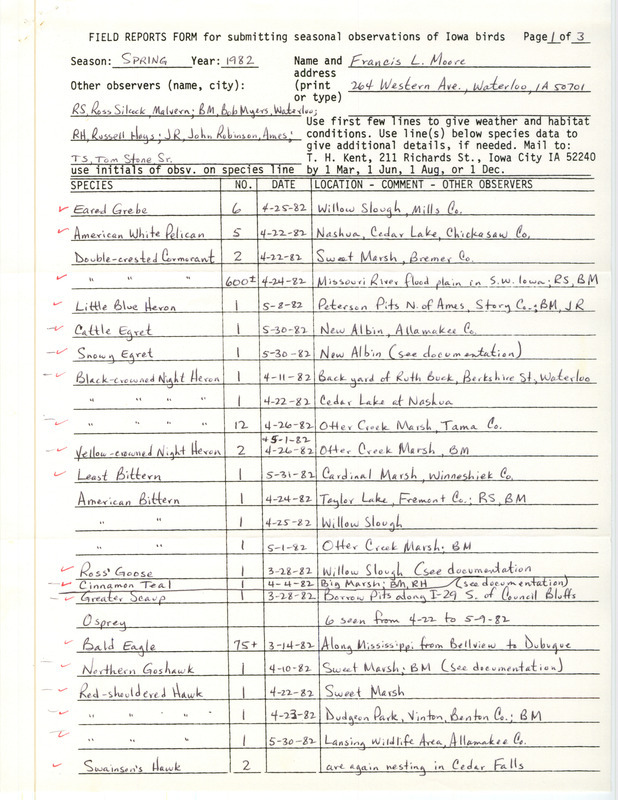 FIELD REPORTS FORM for submitting seasonal observations of Iowa birds Page 1 of 3
Season: SPRING Year: 1982 Name and Francis L. Moore
address
Other observers (name, city): (print 264 Western Ave., Waterloo, IA 50701
or type)
RS, Ross Silcock, Malvern; BM, Bob Myers, Waterloo;
Use first few lines to give weather and habitat
RH, Russell Hays; JR, John Robinson, Ames; conditions. Use line(s) below species data to
give additional details, if needed. Mail to:
TS, Tom Stone Sr. T. H. Kent, 211 Richards St., Iowa City IA 52240
use initials of obsv. on species line by 1 Mar, 1 Jun, 1 Aug, or 1 Dec.
SPECIES NO. DATE LOCATION - COMMENT - OTHER OBSERVERS
Eared Grebe 6 4-25-82 Willow Slough, Mills Co.
American White Pelican 5 4-22-82 Nashua, Cedar Lake, Chickasaw Co,
Double-crested Cormorant 2 4-22-82 Sweet Marsh, Bremer Co.
" " " 600± 4-24-82 Missouri River flood plain in S.W. Iowa; RS, BM
Little Blue Heron 1 5-8-82 Peterson Pits N. of Ames, Story Co.; BM, JR
Cattle Egret 1 5-30-82 New Albin, Allamakee Co.
Snowy Egret 1 5-30-82 New Albin (see documentation)
Black-crowned Night Heron 1 4-11-82 Back yard of Ruth Buck, Berkshire St, Waterloo
" " " " 1 4-22-82 Cedar Lake at Nashua
" " " " 12 4-26-82 Otter Creek Marsh, Tama Co.
+5-1-82
Yellow-crowned Night Heron 2 4-26-82 Otter Creek Marsh, BM
Least Bittern 1 5-31-82 Cardinal Marsh, Winneshiek Co.
American Bittern 1 4-24-82 Taylor Lake, Fremont Co.; RS, BM
" " 1 4-25-82 Willow Slough
" " 1 5-1-82 Otter Creek Marsh; BM
Ross' Goose 1 3-28-82 Willow Slough (see documentation
Cinnamon Teal 1 4-4-82 Big Marsh; BM, RH (see documentation)
Greater Scaup 1 3-28-82 Borrow Pits along I-29 S. of Council Bluffs
Osprey 6 seen from 4-22 to 5-9-82
Bald Eagle 75+ 3-14-82 Along Mississippi from Bellview to Dubuque
Northern Goshawk 1 4-10-82 Sweet Marsh; BM (see documentation)
Red-shouldered Hawk 1 4-22-82 Sweet Marsh
" " " 1 4-23-82 Dudgeon Park, Vinton, Benton Co.; BM
" " " 1 5-30-82 Lansing Wildlife Area, Allamakee Co.
Swainson's Hawk 2 are again nesting in Cedar Falls